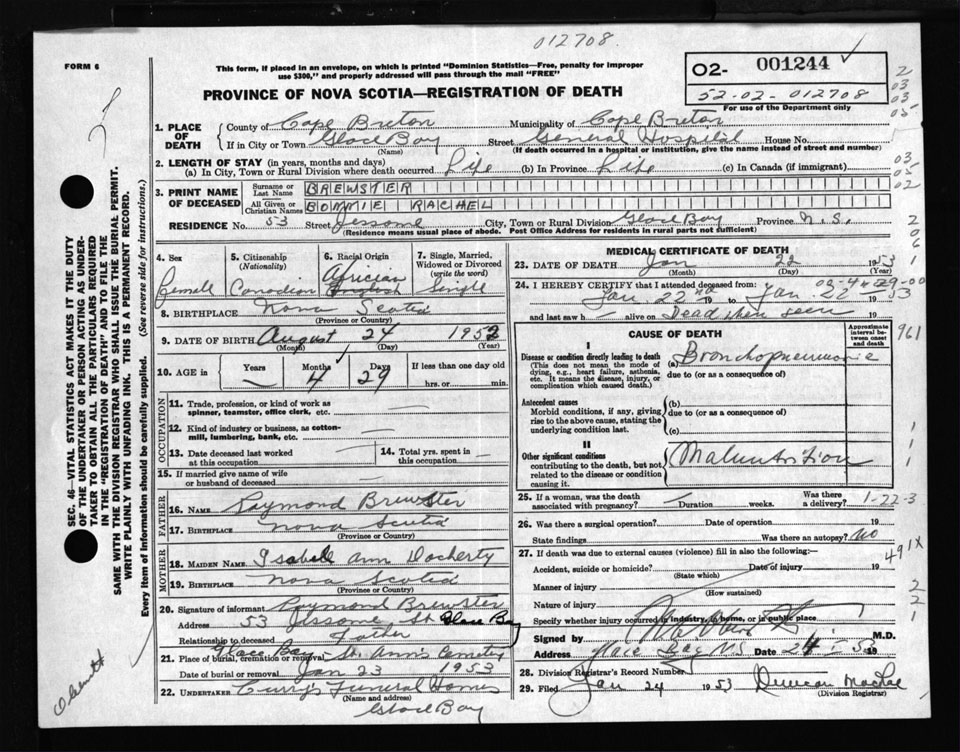 012708.
FORM 6
This form, if placed in an envelope, on which is printed "Dominion Statistics—Free, penalty for improper
use $300," and properly addressed will pass through the mail "FREE"
02- 001244
52-02-012708
For use of the Department only
PROVINCE OF NOVA SCOTIA—REGISTRATION OF DEATH
1. PLACE OF DEATH
County of Cape Breton Municipality of Cape Breton
If in City or Town Glace Bay Street General Hospital House No.
(Name) (If death occurred in a hospital or institution, give the name instead of street and number)
2. LENGTH OF STAY (in years, months and days)
(a) In City, Town or Rural Division where death occurred Life (b) In Province Life (c) In Canada (if immigrant)
3. PRINT NAME OF DECEASED
Surname or Last Name BREWSTER
All Given or Christian Names BONNIE RACHEL
RESIDENCE No. 53 Street Jessome City, Town or Rural Division Glace Bay Province N.S.
(Residence means usual place of abode. Post Office Address for residents in rural parts not sufficient)
4. Sex Femell
5. Citizenship (Nationality) Canadian
6. Racial Origin African
7. Single, Married, Widowed or Divorced (write the word) Single
8. BIRTHPLACE Nova Scotia
(Province or Country)
9. DATE OF BIRTH August 24 1952
(Month) (Day) (Year)
10. AGE in Years — Months 4 Days 29 If less than one day old hrs. or min.
OCCUPATION
11. Trade, profession, or kind of work as spinner, teamster, office clerk, etc. —
12. Kind of industry or business, as cotton-mill, lumbering, bank, etc. —
13. Date deceased last worked at this occupation —
14. Total yrs. spent in this occupation —
15. If married give name of wife or husband of deceased
FATHER
16. NAME Raymond Brewster
17. BIRTHPLACE Nova Scotia
(Province or Country)
MOTHER
18. MAIDEN NAME Isabell Ann Docherty
19. BIRTHPLACE Nova Scotia
(Province or Country)
20. Signature of informant Raymond Brewster
Address 53 Jessome St Glace Bay
Relationship to deceased Father
21. Place of burial, cremation or removal Glace Bay St. Ann's Cemetery
Date of burial or removal Jan 23 1953
22. UNDERTAKER Curry's Funeral Homes
(Name and address)
Glace Bay
MEDICAL CERTIFICATE OF DEATH
23. DATE OF DEATH Jan 22 1953
(Month) (Day) (Year)
24. I HEREBY CERTIFY that I attended deceased from:
Jan. 22nd 19 to Jan. 22 1953
and last saw h alive on Dead when seen
CAUSE OF DEATH
Approximate interval between onset and death
I
Disease or condition directly leading to death (This does not mean the mode of dying, e.g., heart failure, asthenia, etc. It means the disease, injury, or complication which caused death.)
(a) Bronchopneumonie
due to (or as a consequence of)
Antecedent causes
Morbid conditions, if any, giving rise to the above cause, stating the underlying condition last.
(b)
due to (or as a consequence of)
(c)
II
Other significant conditions contributing to the death, but not related to the disease or condition causing it.
Malnutrition
25. If a woman, was the death associated with pregnancy? — Duration weeks. Was there a delivery?
1-22-3
26. Was there a surgical operation? Date of operation 19
State findings Was there an autopsy? No
27. If death was due to external causes (violence) fill in also the following:—
Accident, suicide or homicide? Date of injury 19
(State which)
Manner of injury
(How sustained)
Nature of injury
Specify whether injury occurred in industry, in home, or in public place
Signed by M.D.
Address Glace Bay NS Date 24 I 1953
28. Division Registrar's Record Number
29. Filed Jan 24 1953 Duncan MacRae
(Division Registrar)
961
491X
SEC. 46—VITAL STATISTICS ACT MAKES IT THE DUTY
OF THE UNDERTAKER OR PERSON ACTING AS UNDER-
TAKER TO OBTAIN ALL THE PARTICULARS REQUIRED
IN THE "REGISTRATION OF DEATH" AND TO FILE THE
SAME WITH THE DIVISION REGISTRAR WHO SHALL ISSUE THE BURIAL PERMIT.
WRITE PLAINLY WITH UNFADING INK. THIS IS A PERMANENT RECORD.
Every item of information should be carefully supplied. (See reverse side for instructions.)